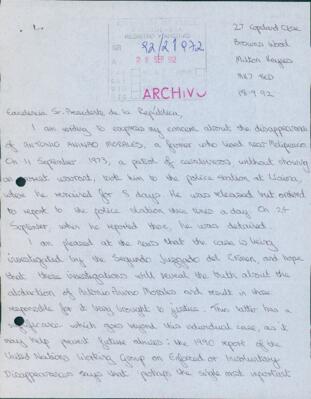 27 Copeland Close
REGISTRO Y ARCHIVO
92/21972
Browns Wood
Milton Keynes
28 SEP 92
MK7
ARCHIVO
18.9.92
Excelencia Sr. Presidente de la República,
I am writing to express my concern about the disappearance
of ANTONIO ANINAO MORALES, a farmer who lived near Melipeuco.
On 11 September 1973, a patrol of carabineros, without showing
an arrest warrant, took him to the police station at Llaima,
where he remained for 8 days. He was released but ordered
to report to the police station three times a day. On 24
September, when he reported there, he was detained.
I am pleased at the news that the case is being
investigated by the Segundo Juzgado del Crimen, and hope
that these investigations will reveal the truth about the
abduction of Antonio Aninao Morales and result in those
responsible for it being brought to justice. This latter has a
significance which goes beyond this individual case, as it
may help prevent future abuses: the 1990 report of the
United Nations Working Group on Enforced or Involuntary
Disappearances says that 'perhaps the single most important